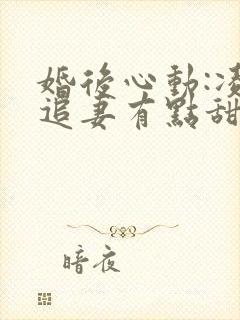 婚後心動:凌
追妻有點甜
暗夜